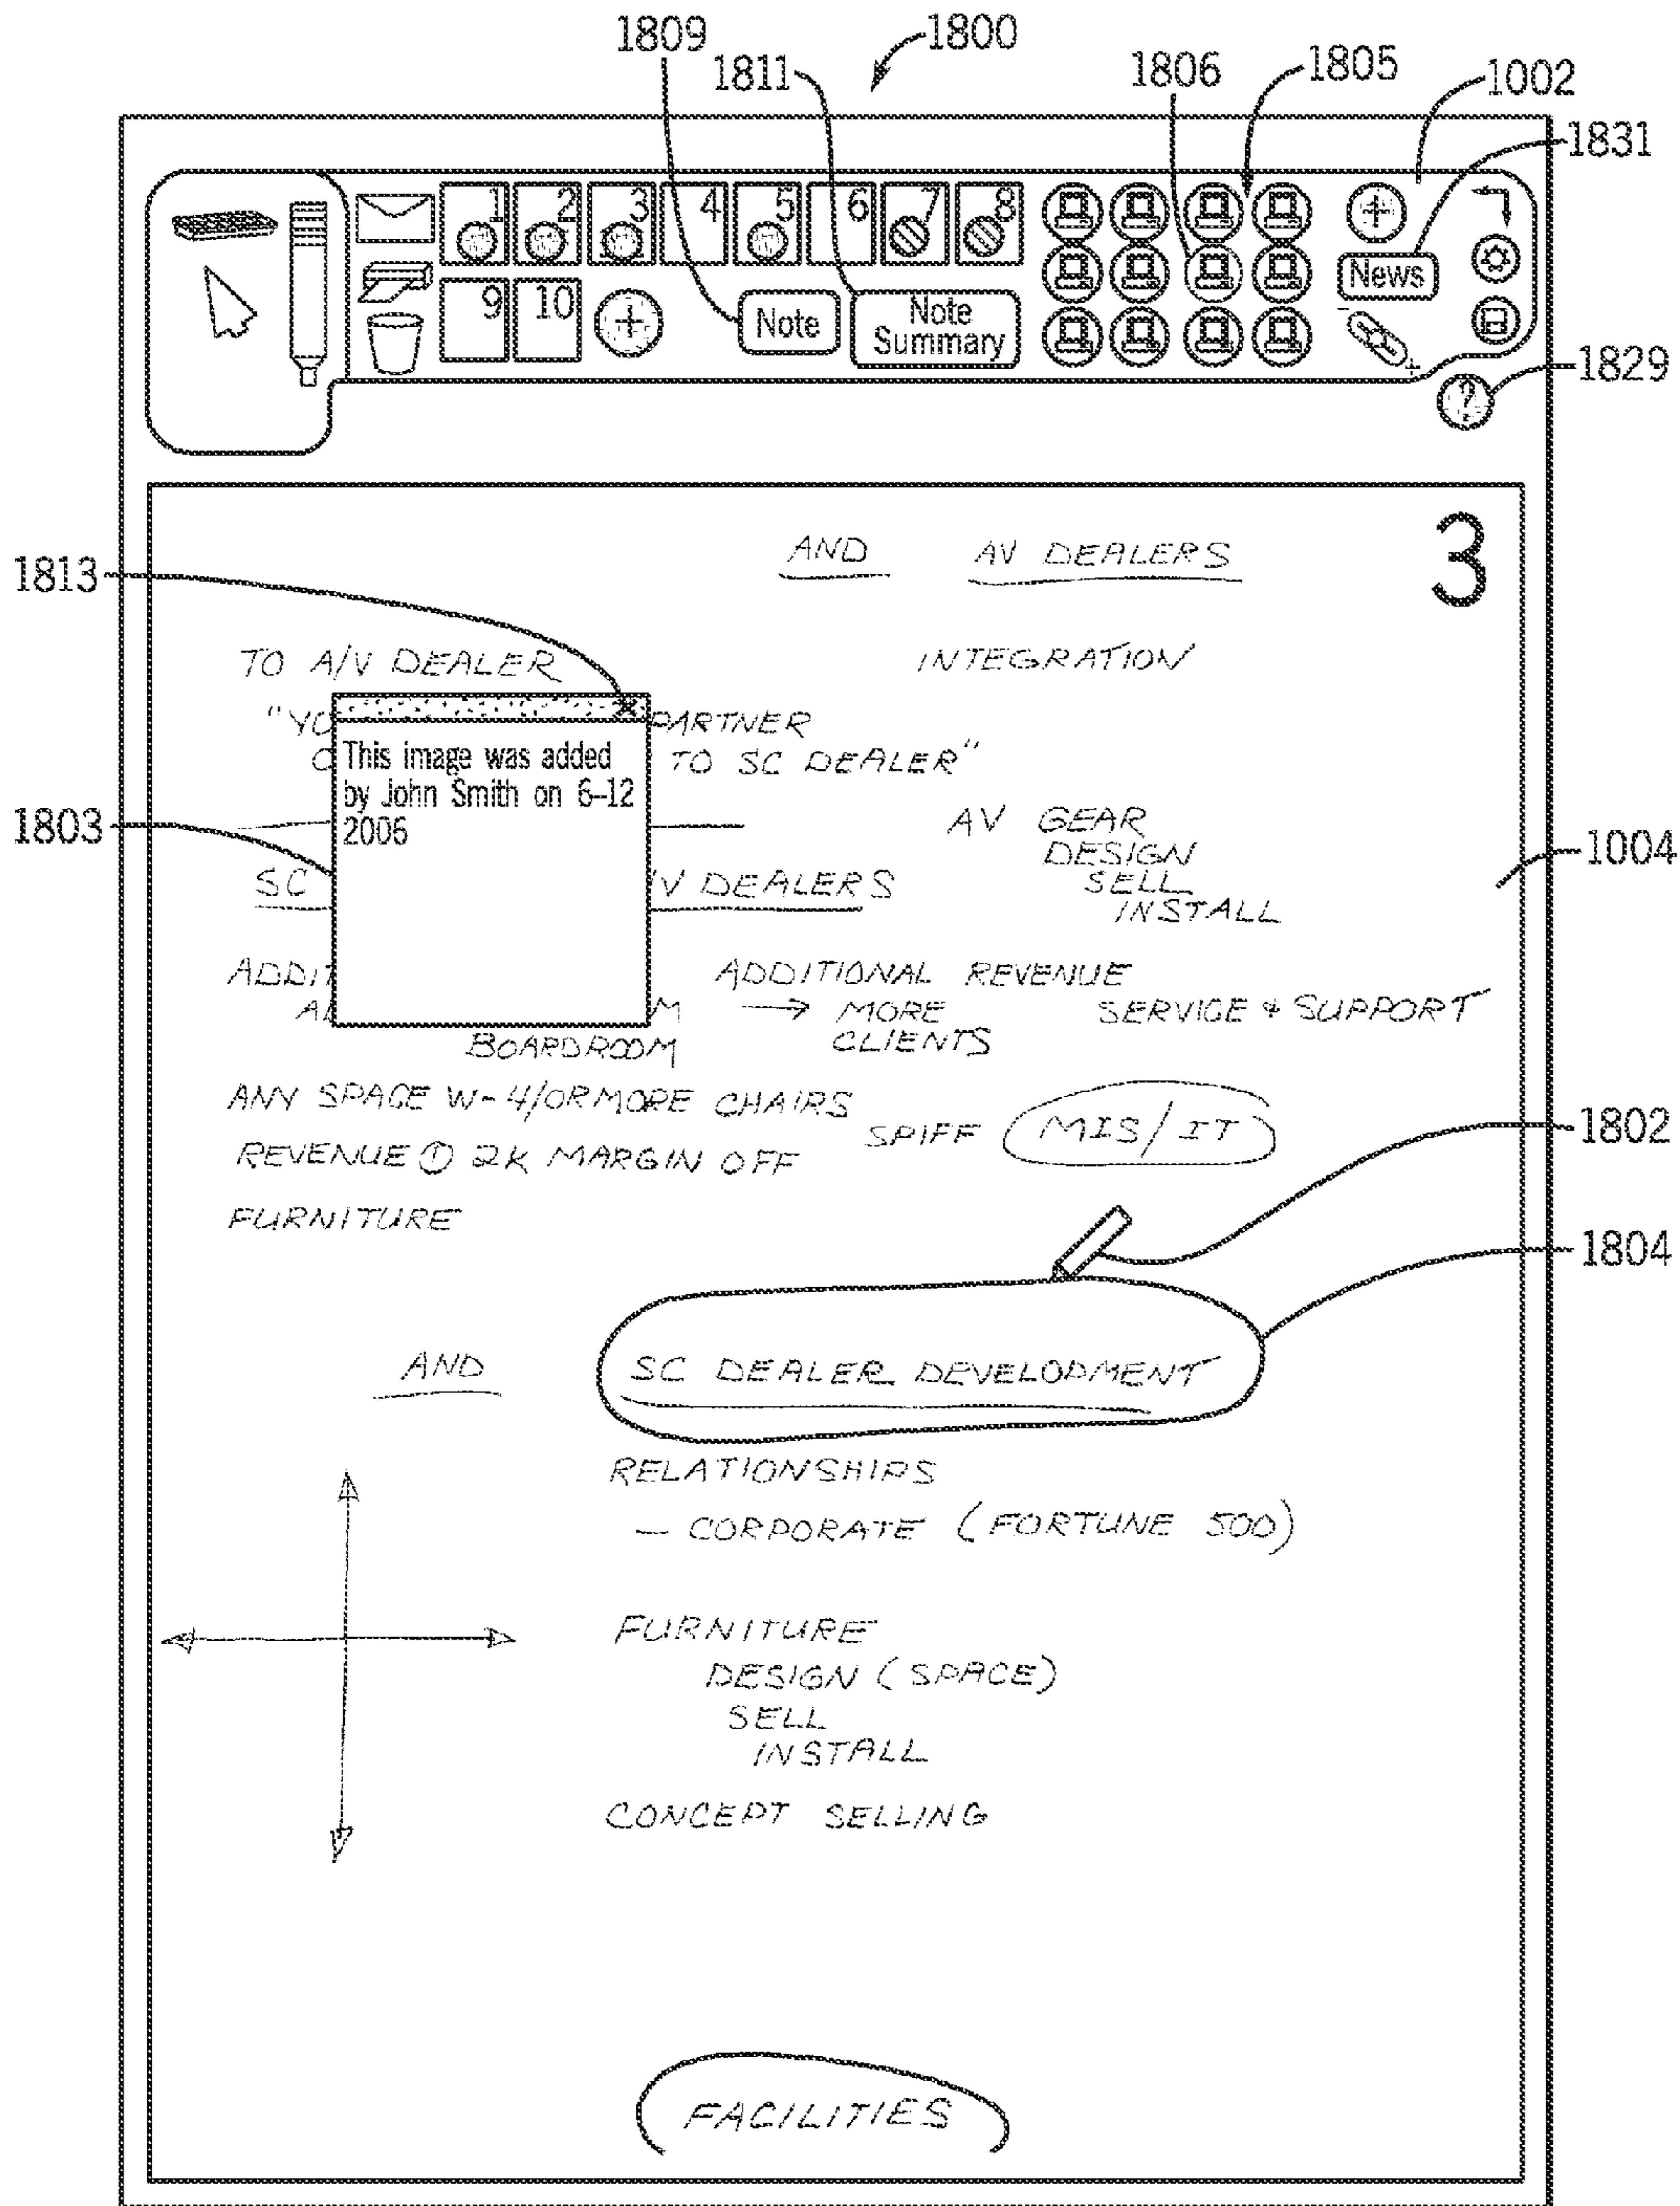 1809
1800
1811
1806
1805
1002
1831
1 2 3 4 5 6 7 8
9 10
Note
Note
Summary
News
?
1829
3
AND AV DEALERS
1813
TO A/V DEALER INTEGRATION
"YO PARTNER
TO SC DEALER"
This image was added
by John Smith on 6-12
2006
1803
AV GEAR
DESIGN
SELL
INSTALL
1004
SC /V DEALERS
ADDIT ADDITIONAL REVENUE
M → MORE SERVICE & SUPPORT
BOARDROOM CLIENTS
ANY SPACE W-4/OR MORE CHAIRS
SPIFF MIS/IT
1802
REVENUE ① 2K MARGIN OFF
FURNITURE
1804
AND SC DEALER DEVELOPMENT
RELATIONSHIPS
— CORPORATE (FORTUNE 500)
FURNITURE
DESIGN (SPACE)
SELL
INSTALL
CONCEPT SELLING
FACILITIES